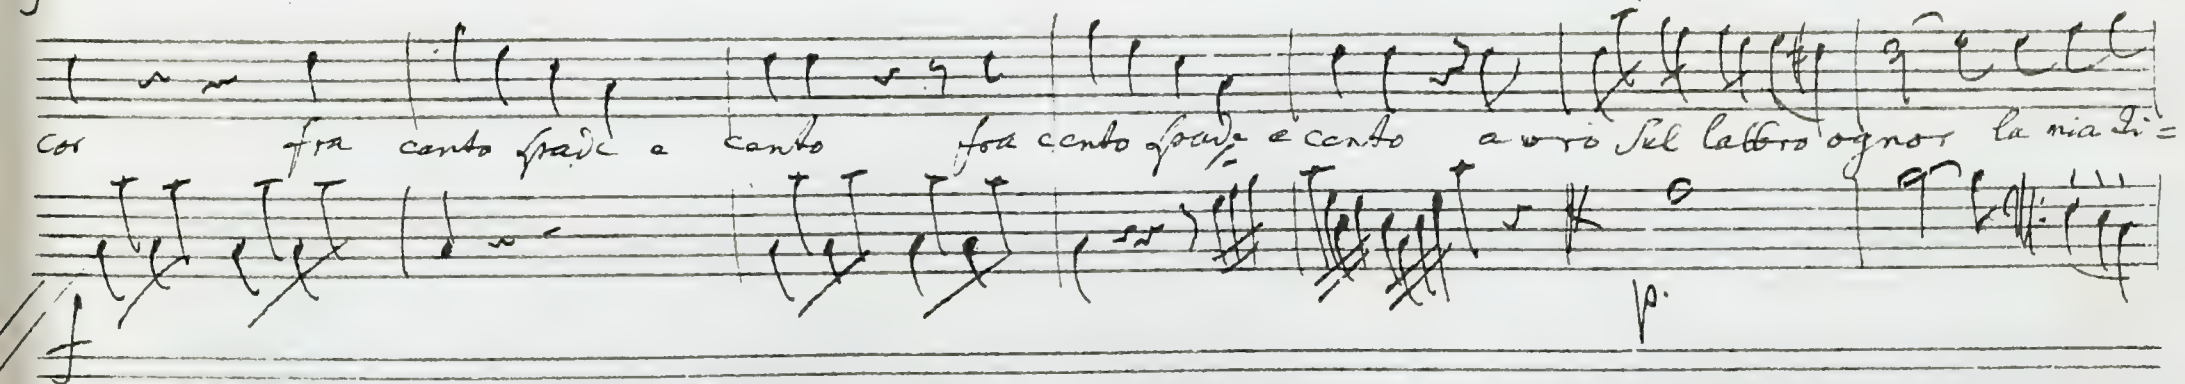 cor fra cento spade e cento fra cento spade e cento avrò sul labbro ognor la mia Di=
f
p.